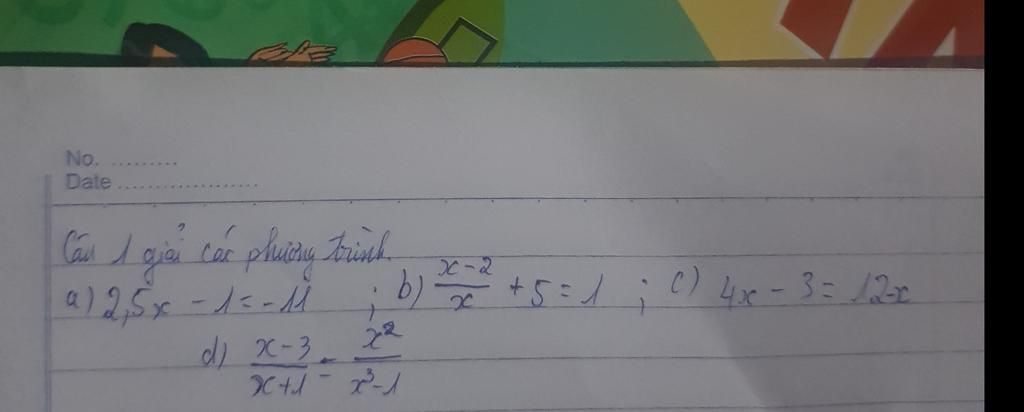 No. ..........
Date ....................
Câu 1 giải các phương trình.
a) 2,5x - 1 = -11 ; b) \frac{x-2}{x} + 5 = 1 ; c) 4x - 3 = 12-x
d) \frac{x-3}{x+1} = \frac{x^2}{x^3-1}